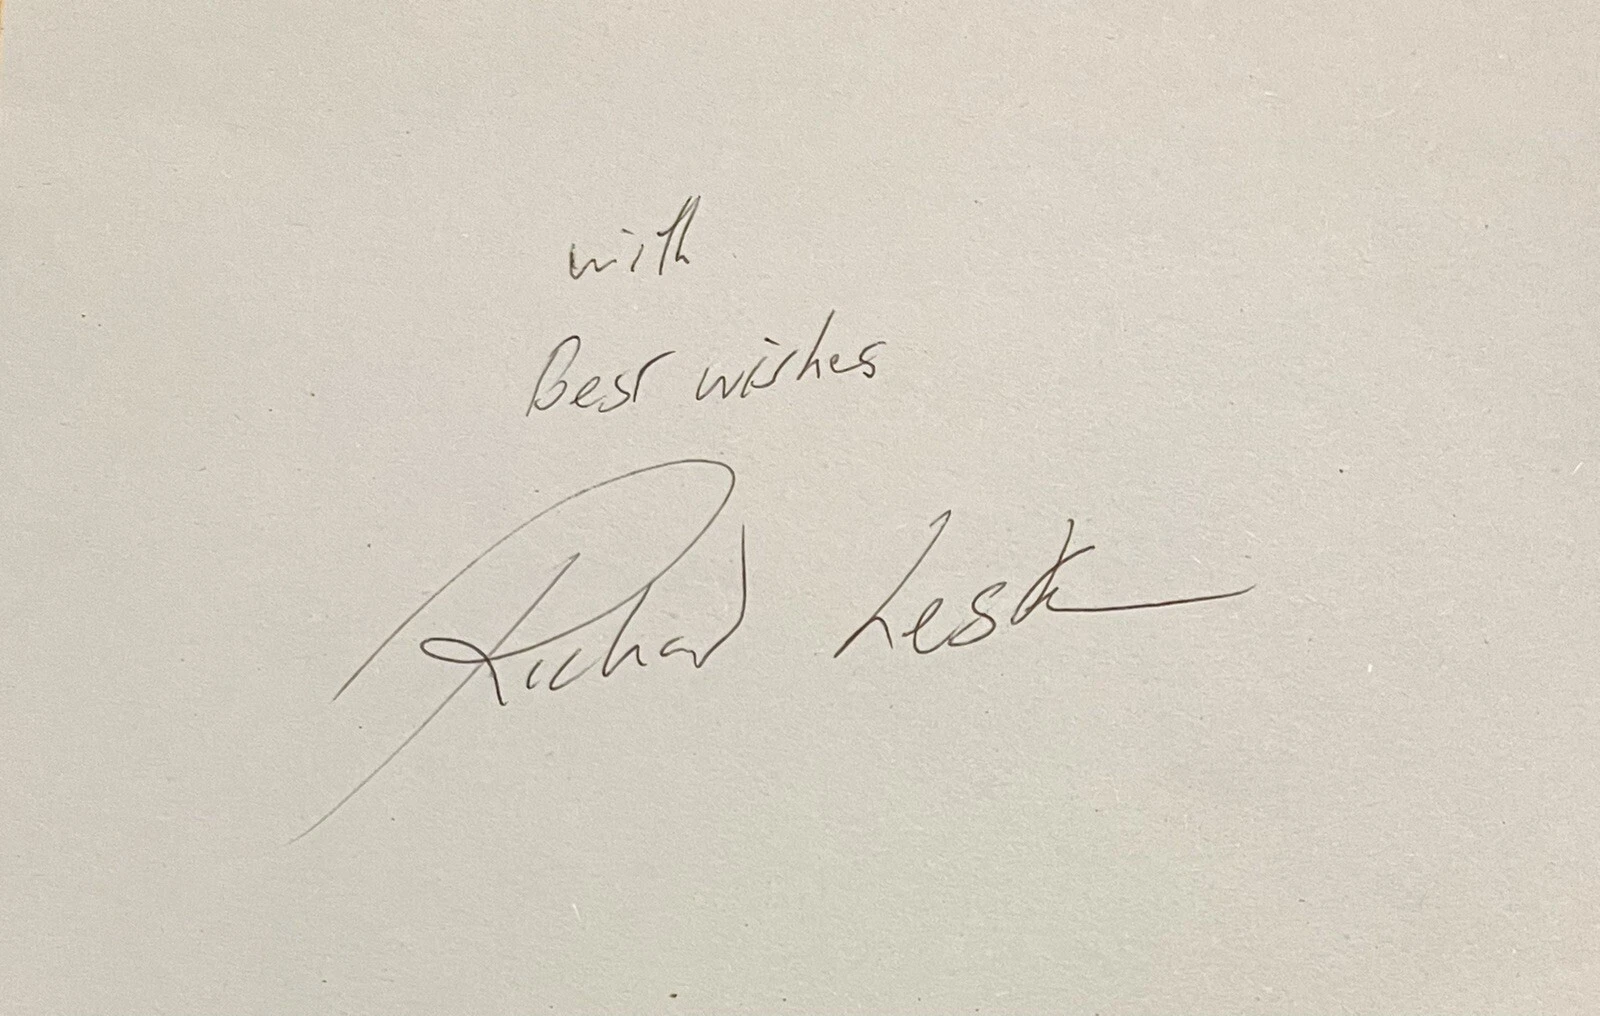 with
Best wishes
Richard Lesk